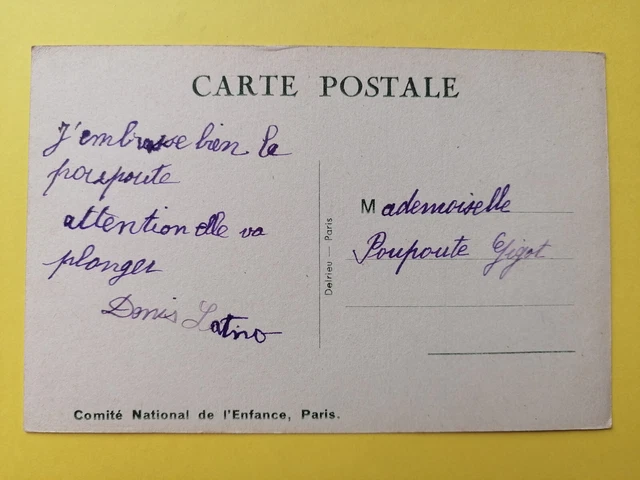 CARTE POSTALE
J'embrasse bien la
poupoute
attention elle va
plonger
Denis Latino
Mademoiselle
Poupoute Gigot
Delrieu — Paris
Comité National de l'Enfance, Paris.